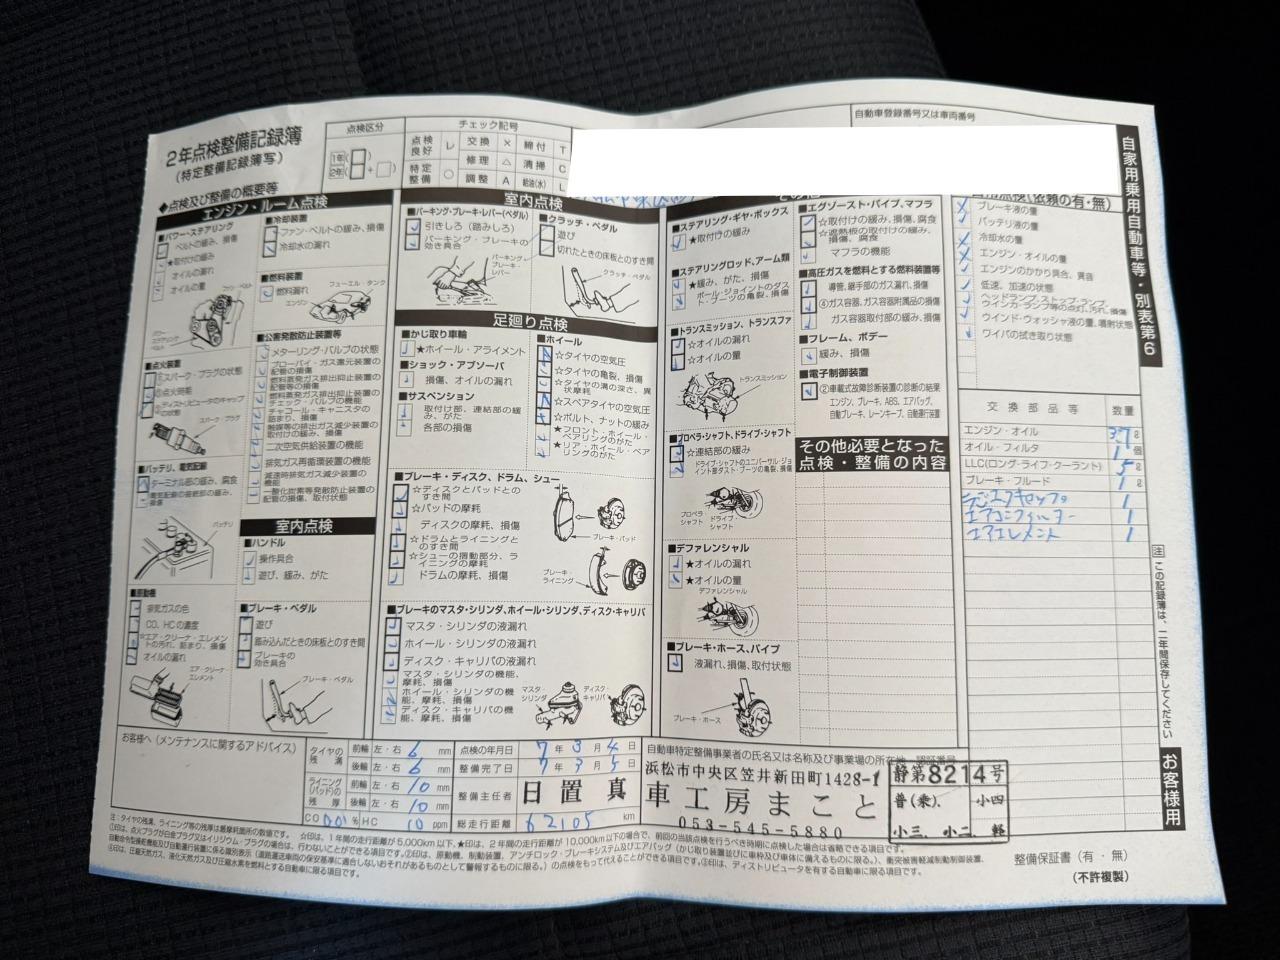 2年点検整備記録簿
(特定整備記録簿写)
点検区分
1年(
2年(
チェック記号
点検良好 レ 交換 × 締付 T
特定整備 ○ 修理 △ 清掃 C
調整 A 給油(水) L
自動車登録番号又は車両番号
自家用乗用自動車等・別表第6
◆点検及び整備の概要等
エンジン・ルーム点検
■パワー・ステアリング
ベルトの緩み、損傷
★取付けの緩み
オイルの漏れ
オイルの量
ファン・ベルト
パワーステアリングベルト
■点火装置
☆スパーク・プラグの状態
点火時期
ディストリビュータのキャップの状態
スパーク・プラグ
■バッテリ、電気配線
ターミナル部の緩み、腐食
電気配線の接続部の緩み、損傷
バッテリ
■原動機
排気ガスの色
CO、HCの濃度
☆エア・クリーナ・エレメントの汚れ、詰まり、損傷
オイルの漏れ
エア・クリーナ・エレメント
■冷却装置
ファン・ベルトの緩み、損傷
冷却水の漏れ
■燃料装置
燃料漏れ
フューエル・タンク
エンジン
■公害発散防止装置等
メターリング・バルブの状態
ブローバイ・ガス還元装置の配管の損傷
燃料蒸発ガス排出抑止装置の配管等の損傷
燃料蒸発ガス排出抑止装置のチェック・バルブの機能
チャコール・キャニスタの詰まり、損傷
触媒等の排出ガス減少装置の取付けの緩み、損傷
二次空気供給装置の機能
排気ガス再循環装置の機能
減速時排気ガス減少装置の機能
一酸化炭素等発散防止装置の配管の損傷、取付状態
室内点検
■ハンドル
操作具合
遊び、緩み、がた
■ブレーキ・ペダル
遊び
踏み込んだときの床板とのすき間
ブレーキの効き具合
ブレーキ・ペダル
室内点検
■パーキング・ブレーキ・レバー(ペダル)
引きしろ(踏みしろ)
パーキング・ブレーキの効き具合
パーキング・ブレーキ・レバー
■クラッチ・ペダル
遊び
切れたときの床板とのすき間
クラッチ・ペダル
足廻り点検
■かじ取り車輪
★ホイール・アライメント
■ショック・アブソーバ
損傷、オイルの漏れ
■サスペンション
取付け部、連結部の緩み、がた
各部の損傷
■ホイール
☆タイヤの空気圧
☆タイヤの亀裂、損傷
☆タイヤの溝の深さ、異状摩耗
☆スペアタイヤの空気圧
☆ボルト、ナットの緩み
★フロント・ホイール・ベアリングのがた
★リア・ホイール・ベアリングのがた
■ブレーキ・ディスク、ドラム、シュー
☆ディスクとパッドとのすき間
☆パッドの摩耗
ディスクの摩耗、損傷
☆ドラムとライニングとのすき間
☆シューの摺動部分、ライニングの摩耗
ドラムの摩耗、損傷
ブレーキ・パッド
ブレーキ・ライニング
■ブレーキのマスタ・シリンダ、ホイール・シリンダ、ディスク・キャリパ
マスタ・シリンダの液漏れ
ホイール・シリンダの液漏れ
ディスク・キャリパの液漏れ
マスタ・シリンダの機能、摩耗、損傷
ホイール・シリンダの機能、摩耗、損傷
ディスク・キャリパの機能、摩耗、損傷
マスタ・シリンダ
ディスク・キャリパ
■ステアリング・ギヤ・ボックス
★取付けの緩み
■ステアリングロッド、アーム類
★緩み、がた、損傷
ボール・ジョイントのダスト・ブーツの亀裂、損傷
■トランスミッション、トランスファ
☆オイルの漏れ
☆オイルの量
トランスミッション
■プロペラ・シャフト、ドライブ・シャフト
☆連結部の緩み
ドライブ・シャフトのユニバーサル・ジョイント部ダスト・ブーツの亀裂、損傷
プロペラ・シャフト
ドライブ・シャフト
■デファレンシャル
★オイルの漏れ
★オイルの量
デファレンシャル
■ブレーキ・ホース、パイプ
液漏れ、損傷、取付状態
ブレーキ・ホース
■エグゾースト・パイプ、マフラ
☆取付けの緩み、損傷、腐食
☆遮熱板の取付けの緩み、損傷、腐食
マフラの機能
■高圧ガスを燃料とする燃料装置等
導管、継手部のガス漏れ、損傷
④ガス容器、ガス容器附属品の損傷
ガス容器取付部の緩み、損傷
■フレーム、ボデー
緩み、損傷
■電子制御装置
②車載式故障診断装置の診断の結果
エンジン、ブレーキ、ABS、エアバッグ、
自動ブレーキ、レーンキープ、自動運行装置
その他必要となった
点検・整備の内容
(依頼の有・無)
ブレーキ液の量
バッテリ液の量
冷却水の量
エンジン・オイルの量
エンジンのかかり具合、異音
低速、加速の状態
ヘッドランプ、ストップ・ランプ、ウインカ・ランプ等の点灯、汚れ、損傷
ウインド・ウォッシャ液の量、噴射状態
ワイパの拭き取り状態
交換部品等 数量
エンジン・オイル 3.7 ℓ
オイル・フィルタ 1 個
LLC(ロング・ライフ・クーラント) 5 ℓ
ブレーキ・フルード 1 ℓ
ラジエタキャップ 1
エアコンフィルター 1
エアエレメント 1
注 この記録簿は、二年間保存してください
お客様用
お客様へ(メンテナンスに関するアドバイス)
タイヤの残溝 前輪 左・右 6 mm
後輪 左・右 6 mm
ライニング(パッド)の残厚 前輪 左・右 10 mm
後輪 左・右 10 mm
CO 0.01 % HC 10 ppm
点検の年月日 7年3月4日
整備完了日 7年3月5日
整備主任者 日置真
総走行距離 62105 km
自動車特定整備事業者の氏名又は名称及び事業場の所在地、認証番号
浜松市中央区笠井新田町1428-1
車工房まこと
053-545-5880
静第8214号
普(乗)、小四
小三、小二、軽
注:タイヤの残溝、ライニング等の残厚は最摩耗箇所の数値です。 ☆印は、1年間の走行距離が5,000km以下、★印は、2年間の走行距離が10,000km以下の場合で、前回の当該点検を行うべき時期に点検した場合は省略できる項目です。
整備保証書(有・無)
(不許複製)